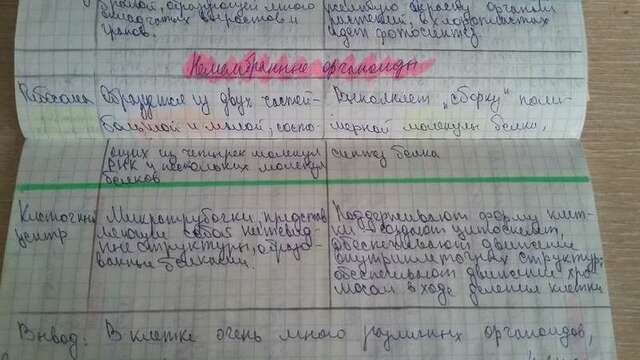 граной, образующей много
складчатых выростов и
гранов.
зелёную окраску органам
растений, в хлоропластах
идет фотосинтез.
Немембранные органоиды
Рибосома
Образуется из двух частей-
большой и малой, состо-
ящих из четырех молекул
РНК и нескольких молекул
белков
Выполняет "сборку" поли-
мерной молекулы белка,
синтез белка
Клеточный
центр
Микротрубочки, представ
ляющие собой нитевид-
ные структуры, образо-
ванные белками.
Поддерживают форму клет-
ки, создают цитоскелет,
обеспечивают движение
внутриклеточных структур,
обеспечивают движение хро
мосом в ходе деления клетки
Вывод: В клетке очень много различных органоидов,